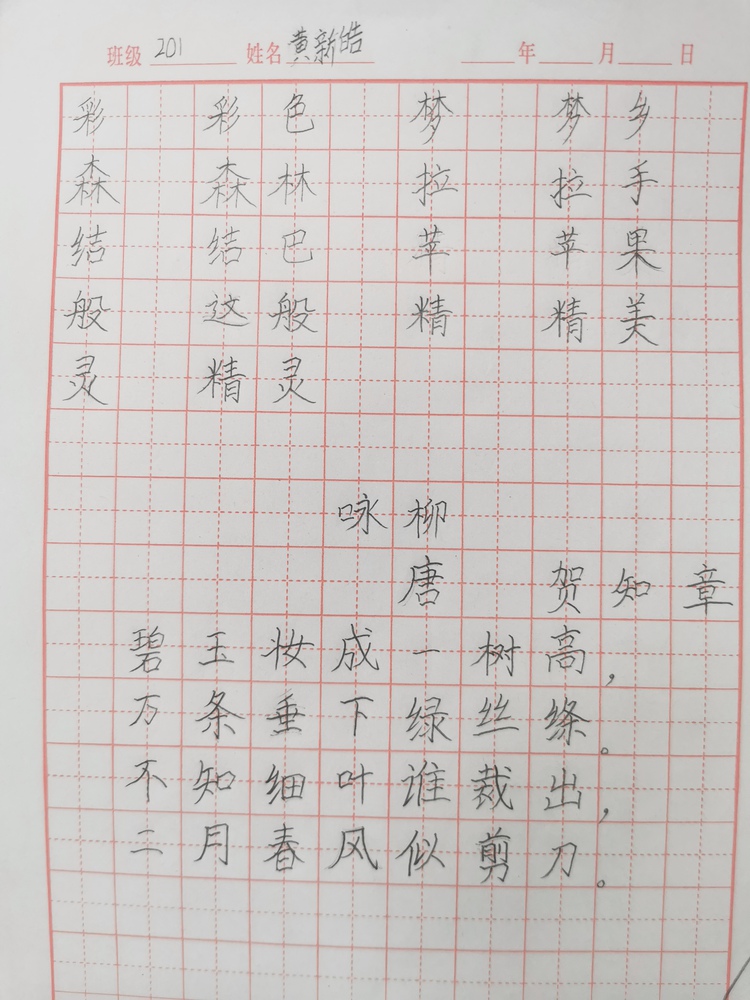 班级 201 姓名 黄新皓 年 月 日
彩 彩色 梦 梦乡
森 森林 拉 拉手
结 结巴 苹 苹果
般 这般 精 精美
灵 精灵
咏柳
唐 贺知章
碧玉妆成一树高，
万条垂下绿丝绦。
不知细叶谁裁出，
二月春风似剪刀。